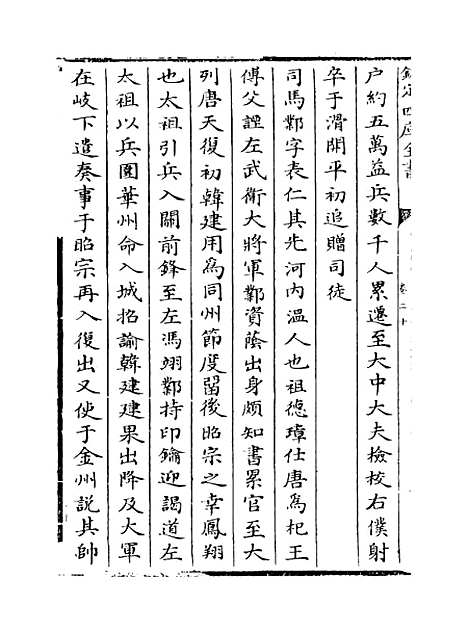 欽定四庫全書
卷二十
户約五萬益兵數千人累遷至大中大夫檢校右僕射
卒于滑開平初追贈司徒
司馬鄴字表仁其先河内温人也祖徳璋仕唐為杞王
傅父諲左武衛大將軍鄴資蔭出身頗知書累官至大
列唐天復初韓建用為同州節度留後昭宗之幸鳳翔
也太祖引兵入關前鋒至左馮翊鄴持印鑰迎謁道左
太祖以兵圍華州命入城招諭韓建建果出降及大軍
在岐下遣奏事于昭宗再入復出又使于金州説其帥